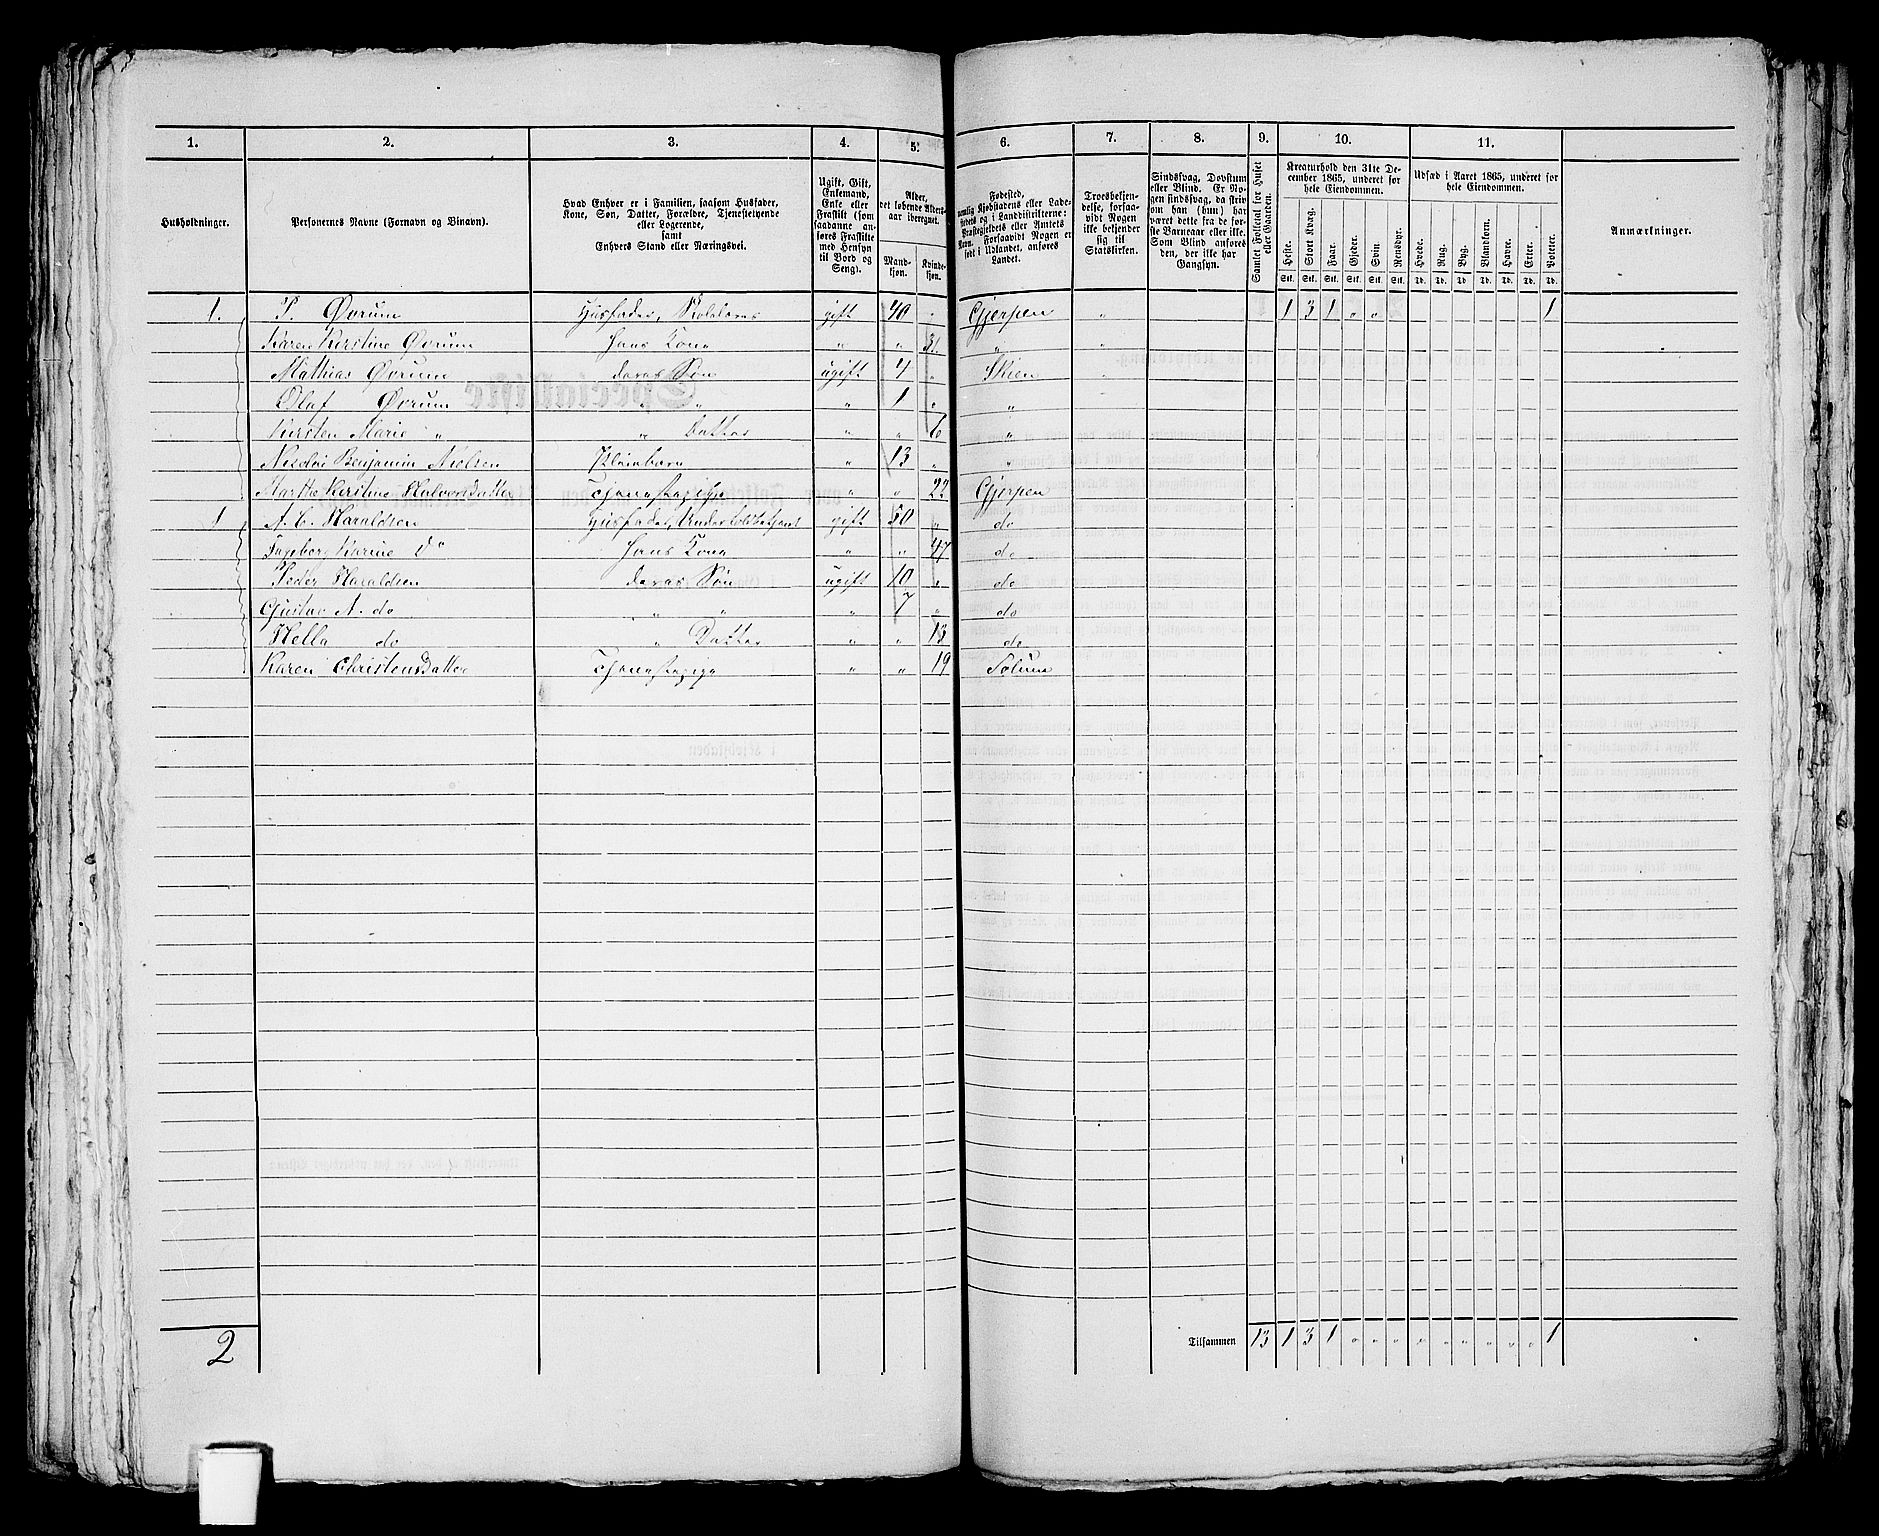 1. 2. 3. 4. 5. 6. 7. 8. 9. 10. 11.
Husholdninger.
Personernes Navne (Fornavn og Binavn).
Hvad Enhver er i Familien, saasom Husfader,
Kone, Søn, Datter, Forældre, Tjenestetyende
eller Logerende,
samt
Enhvers Stand eller Næringsvei.
Ugift, Gift,
Enkemand,
Enke eller
Fraskilt (som
saadanne an-
føres Fraskilte
med Hensyn
til Bord og
Seng).
Alder,
det løbende Alders-
aar iberegnet.
Mand-
kjøn.
Kvinde-
kjøn.
Fødested,
nemlig Kjøbstadens eller Lade-
stedets og i Landdistrikterne:
Præstegjeldets eller Amtets
Navn. Forsaavidt Nogen er
født i Udlandet, anføres
Landet.
Troesbekjen-
delse, forsaa-
vidt Nogen
ikke bekjender
sig til
Statskirken.
Sindssvag, Døvstum
eller Blind. Er No-
gen sindssvag, da skriv
om han (hun) har
været dette fra de før-
ste Barneaar eller ikke.
Som Blind anføres
den, der ikke har
Gangsyn.
Samlet Folketal for Huset
eller Gaarden.
Kreaturhold den 31te De-
cember 1865, underet for
hele Eiendommen.
Heste. Stort Kvæg. Faar. Gjeder. Svin. Rensdyr.
Stk. Stk. Stk. Stk. Stk. Stk.
Udsæd i Aaret 1865, underet for
hele Eiendommen.
Hvede. Rug. Byg. Blandkorn. Havre. Erter. Poteter.
Td. Td. Td. Td. Td. Td. Td.
Anmærkninger.
1. P. Øvrum Husfader, gift 40 " Gjerpen " 1 3 1 " " 1
Karen Kirstine Øvrum Hans Kone " " 31 " "
Mathias Øvrum deres Søn ugift 4 " Skien
Olaf Øvrum " " " 1 "
Kirsten Marie " " Datter " " 6 "
Nicolai Benjamin Nielsen Pleiebarn " 13 " "
Marthe Kirstine Halvorsdatter Tjenestepige " " 22 Gjerpen
1 A. C. Haraldsen Husfader, gift 50 " do
Ingeborg Karine Do Hans Kone " " 47 do
Peder Haraldsen deres Søn ugift 10 " do
Gustav A. do " " " 7 " do
Hella do " Datter " " 13 do
Karen Christensdatter Tjenestepige " " 19 Solum
2 Tilsammen 13 1 3 1 " " " " " " " " " 1